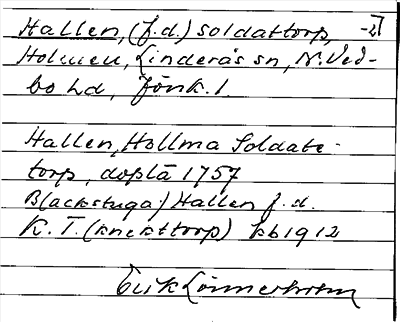 Hallen, (f.d.) soldattorp, -21
Holmen, Linderås sn, N. Ved-
bo hd, Jönk. l.
Hallen, Hollma Soldate-
torp, doplä 1757
B(ackstuga) Hallen f.d.
K.T. (knekttorp) kb 1912
Erik Lönnerholm